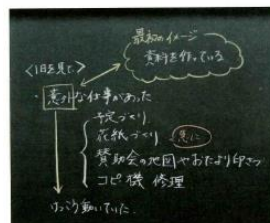 最初のイメージ
資料を作っている
<1日を見て>
・意外な仕事があった
予定づくり
花紙づくり 急に
賛助会の地図やおたより印さつ
コピー機 修理
けっこう動いていた。